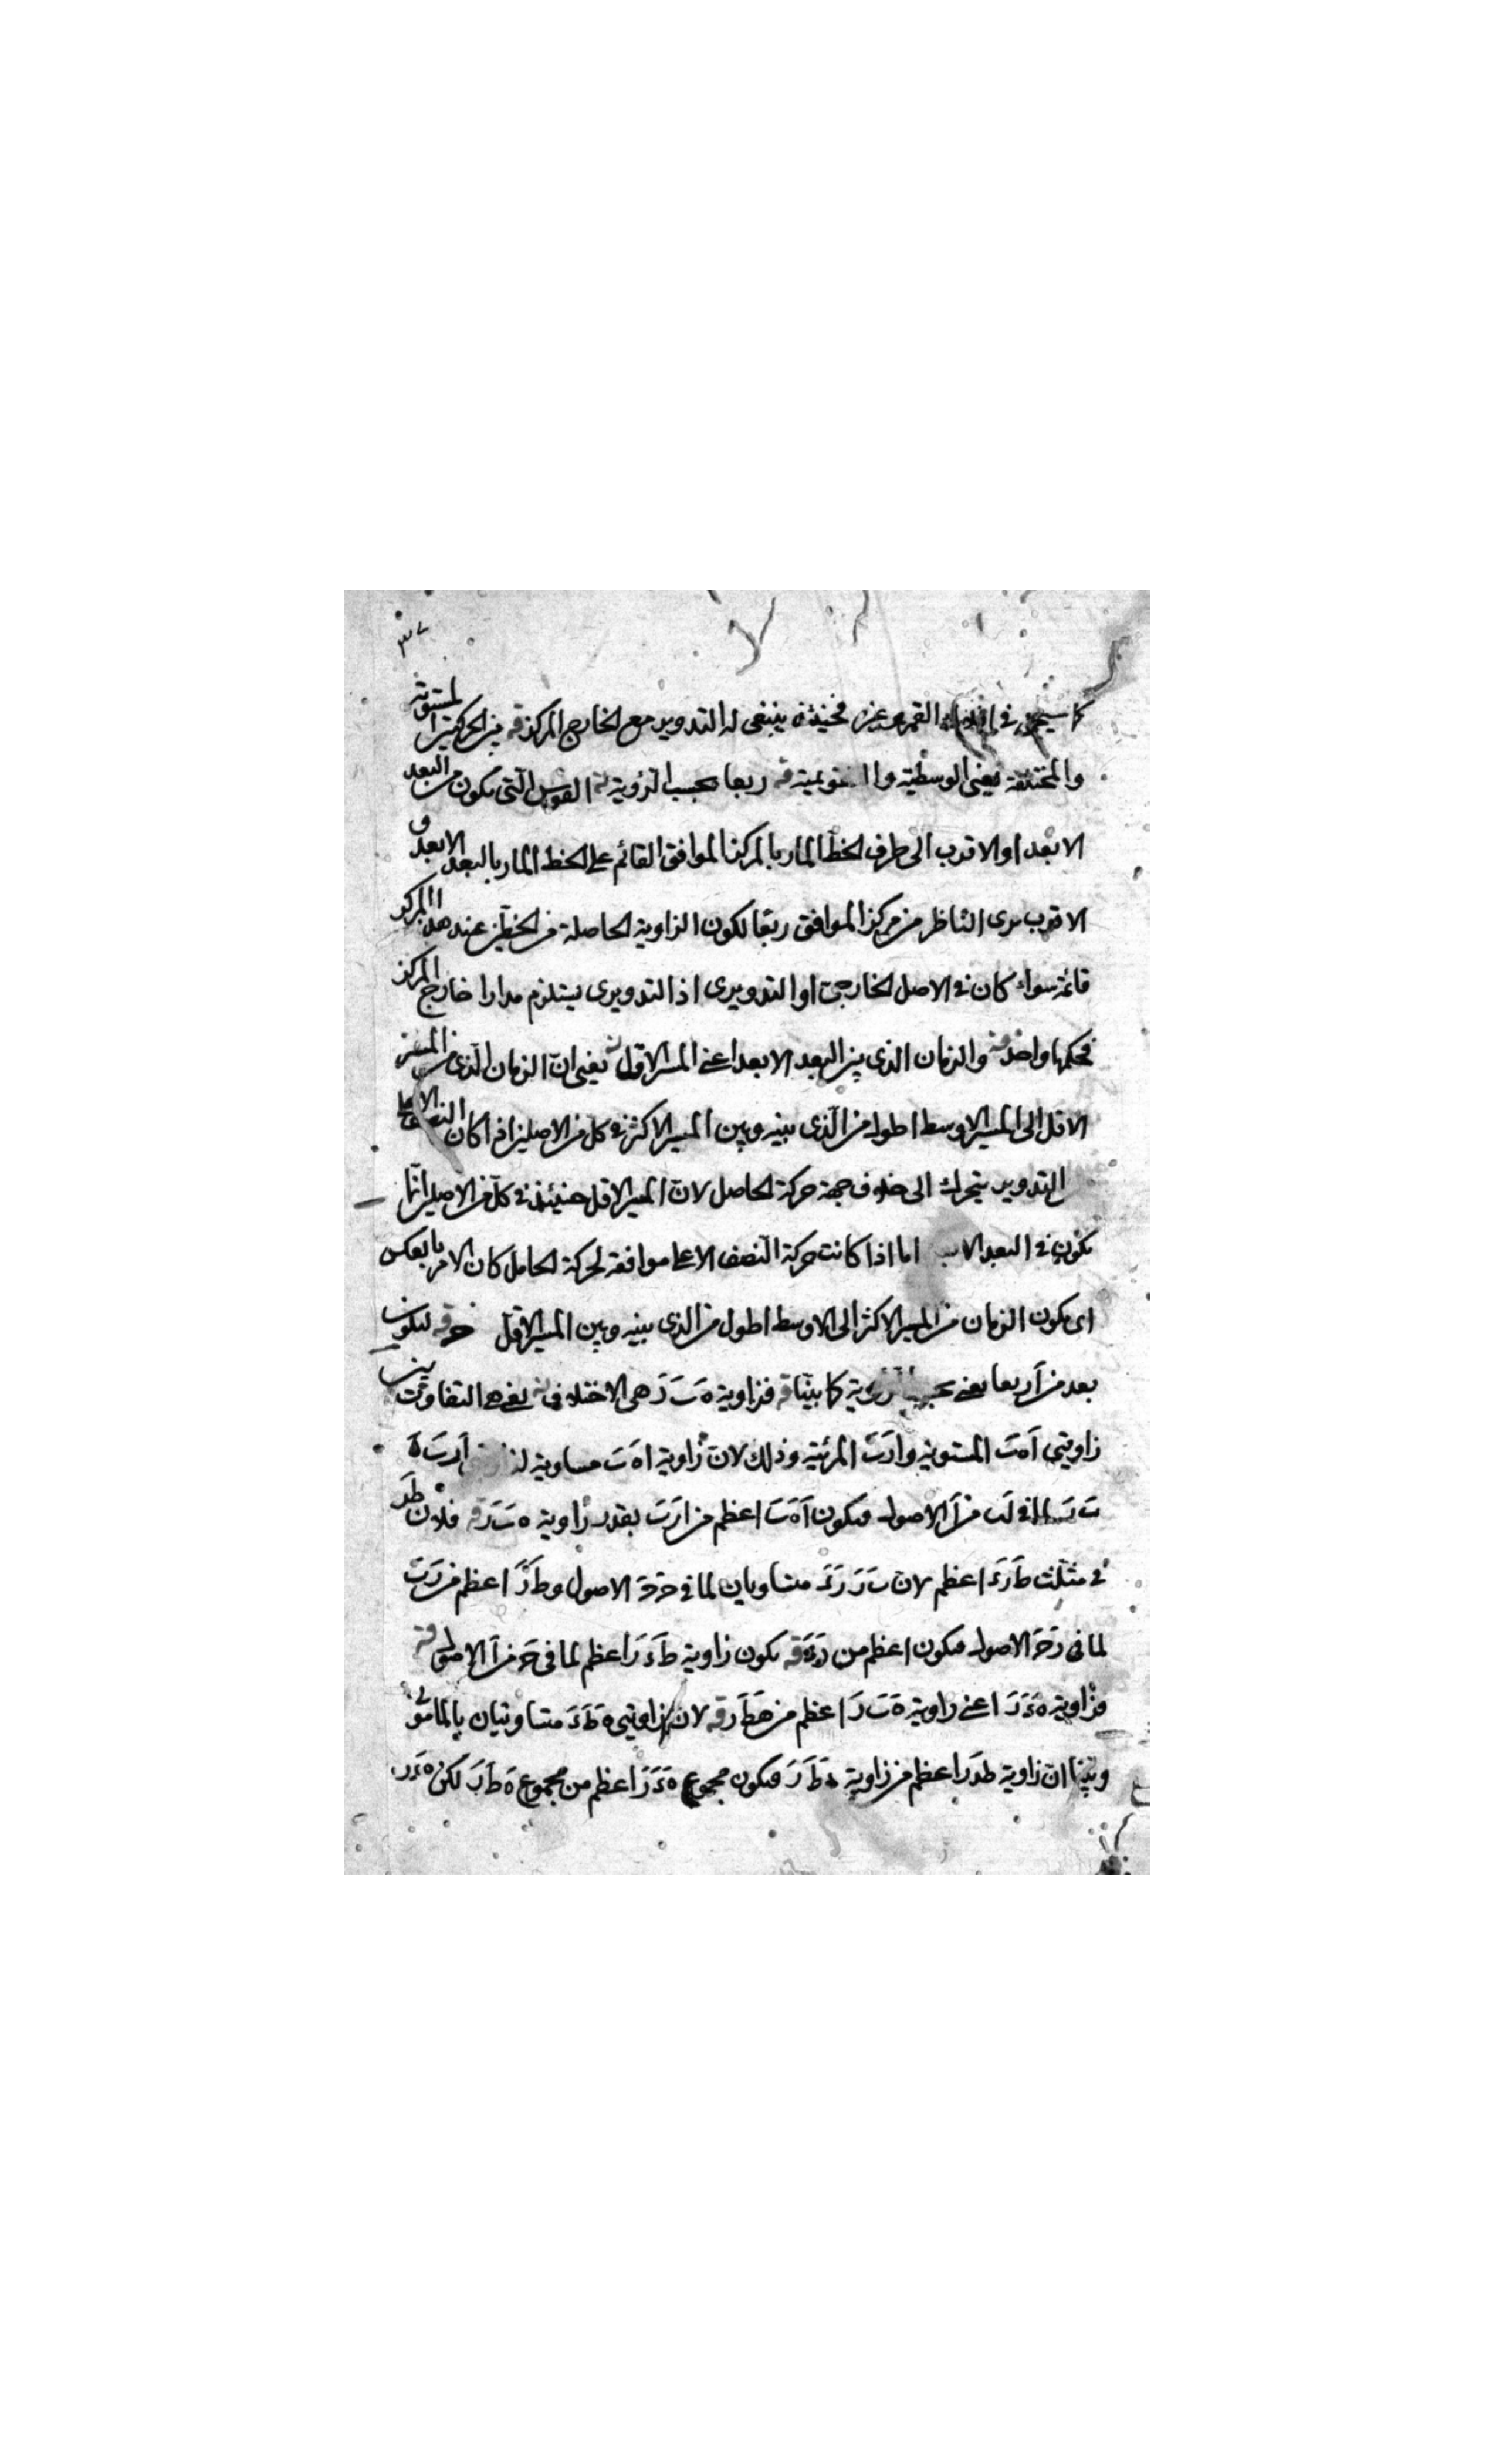 ٣٧
كما سيجئ في القمر وغيره فحينئذ ينبغى له التدوير مع الخارج المركز قه بين الحركتين المستوية
والمختلفة يعنى الوسطية والتقويمية قه ربعا بحسب الرؤية القوس التى يكون من البعد
الابعد او الاقرب الى طرف الخط المار بالمركز الموافق القائم على الخط المار بالبعد الابعد و
الاقرب يرى الناظر من مركز الموافق ربعا لكون الزاوية الحاصلة من الخطين عند هذا المركز
قائمة سواء كان فى الاصل الخارجى او التدويرى اذ التدويرى يستلزم مدارا خارج المركز
فحكمها واحد قه والزمان الذى بين البعد الابعد اعنى المسير الاقل يعنى ان الزمان الذى من المسير
الاقل الى المسير الاوسط اطول من الذى بينه وبين المسير الاكثر فى كل من الاصلين اذا كان النصف الاعلى
التدوير يتحرك الى خلاف جهة حركة الحامل لان المسير الاقل حينئذ فى كل من الاصلين انما
يكون فى البعد اما اذا كانت حركة النصف الاعلى موافقة لحركة الحامل كان الامر بالعكس
اى يكون الزمان من المسير الاكثر الى الاوسط اطول من الذى بينه وبين المسير الاقل قه ليكون
بعد من آ ربعا يعنى بحسب الرؤية كما بينا قه فزاوية ه ب د هى الاختلاف يعنى هى التفاوت بين
زاويتى ا ه ب المستوية وا د ب المرئية وذلك لان زاوية ا ه ب مساوية ا د ب ه
ب لما فى لب من آ الاصول فيكون ا ه ب اعظم من ا د ب بقدر زاوية ه ب د قه فلان ط د
فى مثلث ط د ء اعظم لان ب د د ء متساويان لما فى ج ج الاصول و ط د اعظم من د ب
لما فى ج الاصول فيكون اعظم من د ء قه يكون زاوية ط ء د اعظم لما فى ح من آ الاصول قه
فزاوية ه ء د اعنى زاوية ه ب د اعظم من ه ط د قه لان زاويتى ه ط ء متساويتان بالمأمونى
وبينا ان زاوية ط ء د اعظم من زاوية ء ط د فيكون مجموع ه ء د اعظم من مجموع ه ط د لكن ه ء د